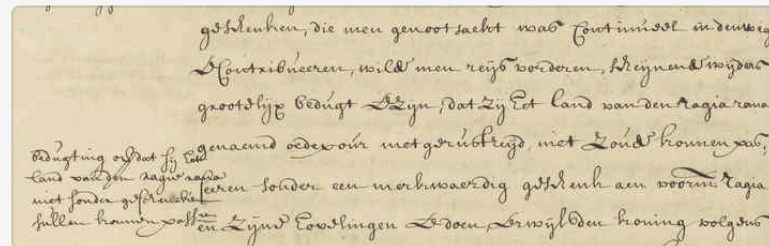 geschenken, die men genootsaekt was Continueel in den weg
te Contribueeren, wilde men reijs vorderen, scheijnende wijders
grootelijx bedugt te zijn, dat zij het land van den ragia rana
genaemd oedepour met gerustheijd, niet zoude konnen pas,
seeren sonder een merkwaerdig geschenk aen voorm: ragia
en zijne hovelingen te doen, terwijl den koning volgens
bedugting ofsdat sij het
land van den ragie rana
niet sonder geschenken
sullen konnen passe